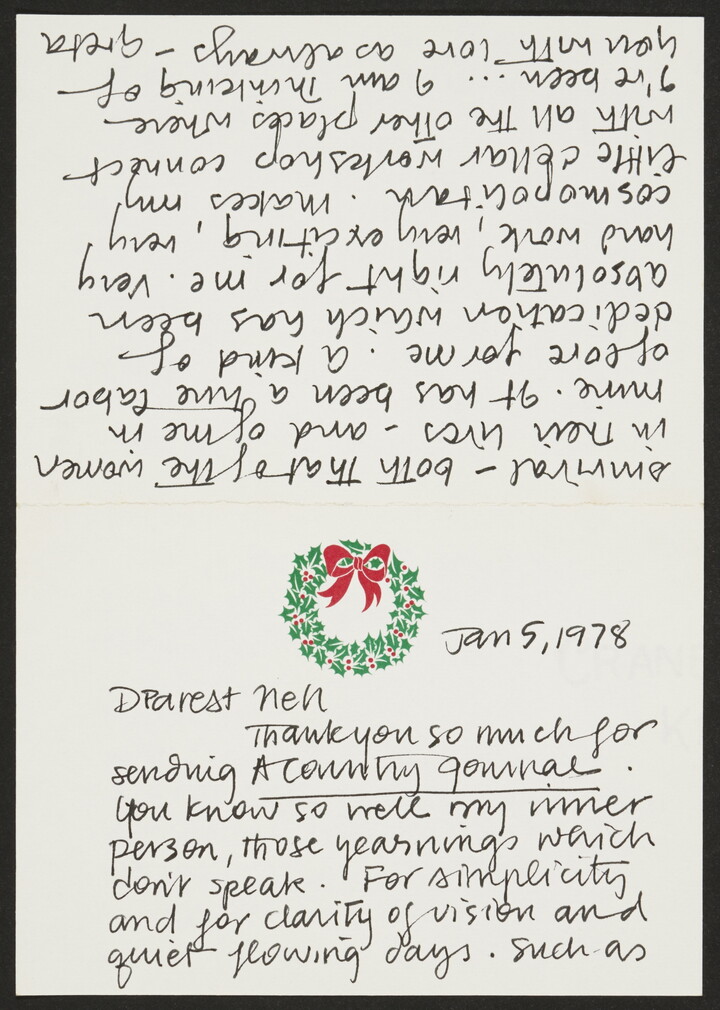 Jan 5, 1978
Dearest Nell
Thank you so much for
sending A Country Journal.
You know so well my inner
person, those yearnings which
don't speak. For simplicity
and for clarity of vision and
quiet flowing days. Such as
survival - both that of the women
in their lives - and of me in
mine. It has been a true labor
of love for me. A kind of
dedication which has been
absolutely right for me. Very
hard work, very exciting, very,
cosmopolitan. Makes my
little cellar workshop connect
with all the other places where
I've been... I am thinking of
you with love as always - Greta